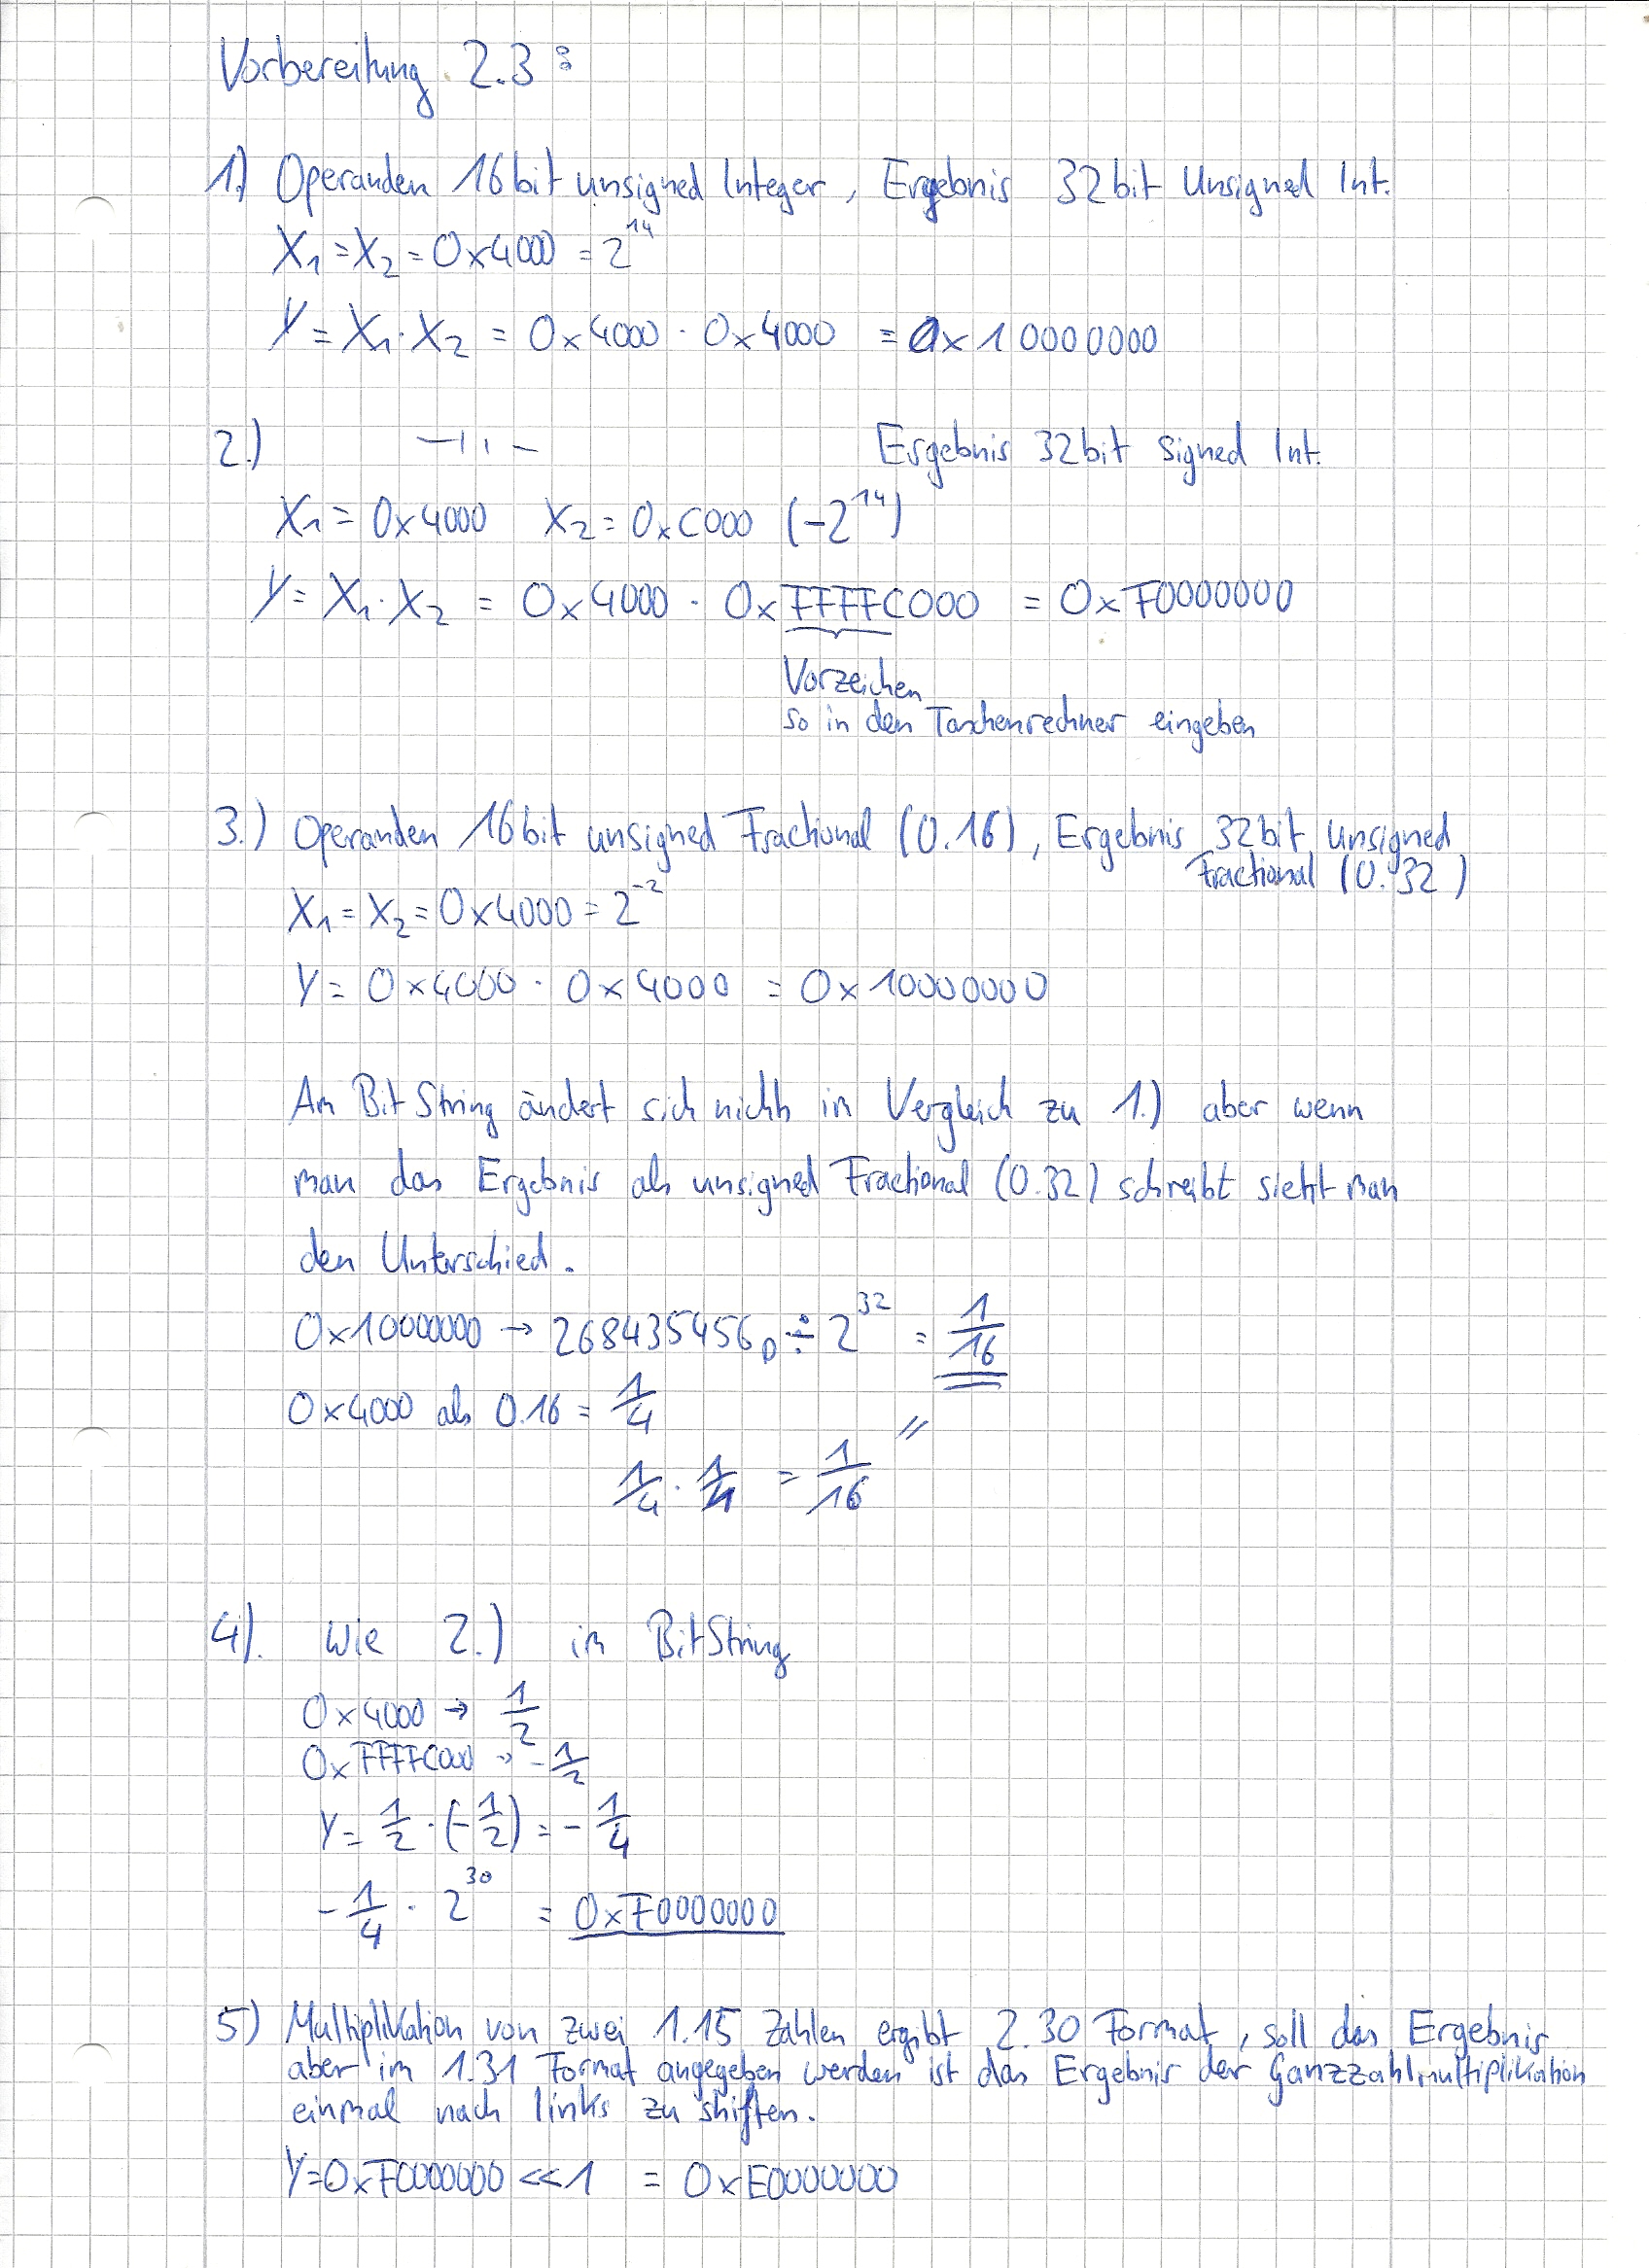 Vorbereitung 2.3:
1.) Operanden 16bit unsigned Integer, Ergebnis 32bit Unsigned Int.
X₁ = X₂ = 0x4000 = 2¹⁴
Y = X₁ · X₂ = 0x4000 · 0x4000 = 0x10000000
2.) —ıı— Ergebnis 32bit signed Int.
X₁ = 0x4000 X₂ = 0xC000 (-2¹⁴)
Y = X₁ · X₂ = 0x4000 · 0xFFFFC000 = 0xF0000000
Vorzeichen
so in den Taschenrechner eingeben
3.) Operanden 16bit unsigned Fractional (0.16), Ergebnis 32bit unsigned
Fractional (0.32)
X₁ = X₂ = 0x4000 = 2⁻²
Y = 0x4000 · 0x4000 = 0x10000000
Am BitString ändert sich nichts im Vergleich zu 1.) aber wenn
man das Ergebnis als unsigned Fractional (0.32) schreibt sieht man
den Unterschied.
0x10000000 → 268435456D ÷ 2³² = 1/16
0x4000 als 0.16 = 1/4
1/4 · 1/4 = 1/16 //
4). Wie 2.) im BitString
0x4000 → 1/2
0xFFFFC000 → -1/2
Y = 1/2 · (-1/2) = -1/4
-1/4 · 2³⁰ = 0xF0000000
5) Multiplikation von zwei 1.15 Zahlen ergibt 2.30 Format, soll das Ergebnis
aber im 1.31 Format angegeben werden ist das Ergebnis der Ganzzahlmultiplikation
einmal nach links zu shiften.
Y=0xF0000000 << 1 = 0xE0000000